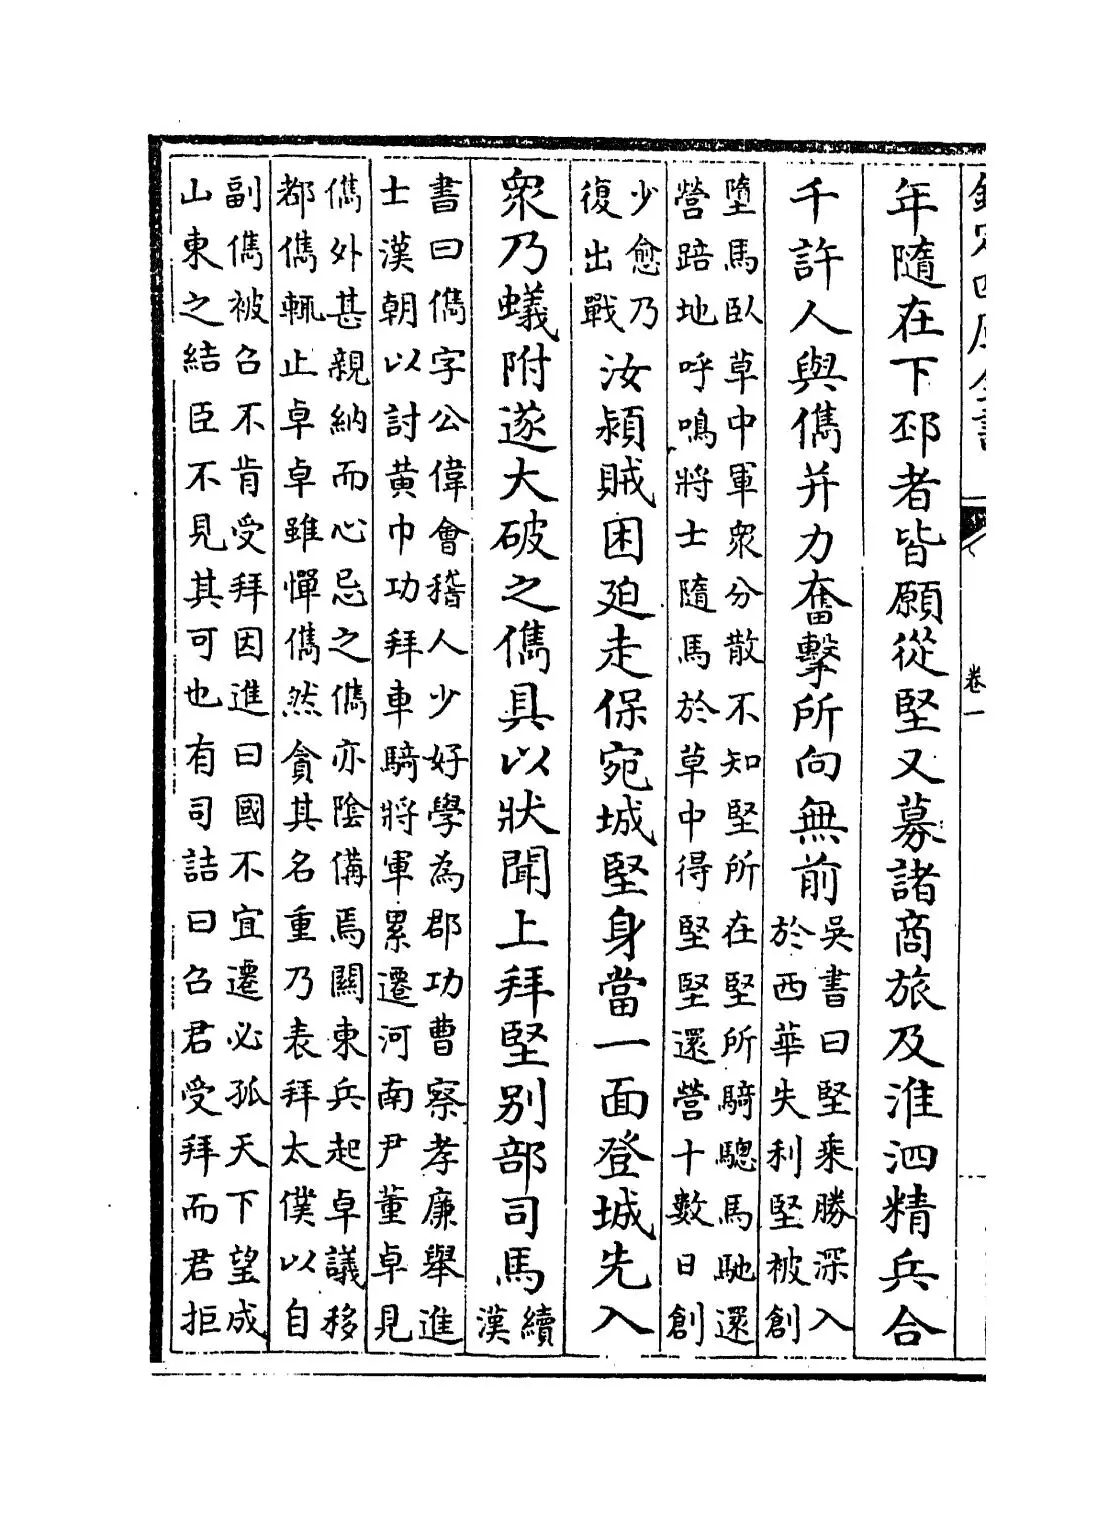 欽定四庫全書
卷一
年隨在下邳者皆願從堅又募諸商旅及淮泗精兵合
千許人與儁并力奮擊所向無前
吳書曰堅乘勝深入
於西華失利堅被創
墮馬臥草中軍衆分散不知堅所在堅所騎驄馬馳還
營踣地呼鳴將士隨馬於草中得堅堅還營十數日創
少愈乃
復出戰
汝潁賊困迫走保宛城堅身當一面登城先入
衆乃蟻附遂大破之儁具以狀聞上拜堅別部司馬
續
漢
書曰儁字公偉會稽人少好學為郡功曹察孝廉舉進
士漢朝以討黃巾功拜車騎將軍累遷河南尹董卓見
儁外甚親納而心忌之儁亦陰備焉關東兵起卓議移
都儁輒止卓卓雖憚儁然貪其名重乃表拜太僕以自
副儁被召不肯受拜因進曰國不宜遷必孤天下望成
山東之結臣不見其可也有司詰曰召君受拜而君拒